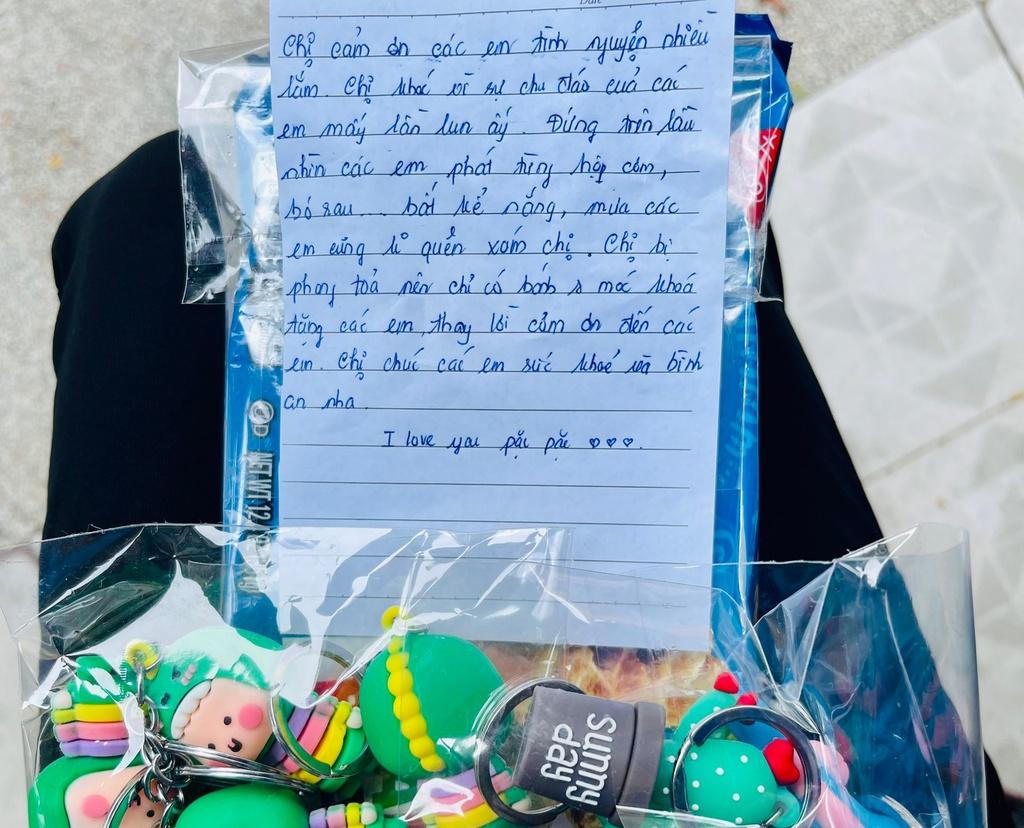 Chị cảm ơn các em tình nguyện nhiều
lắm. Chị khóc vì sự chu đáo của các
em mấy lần lun ấy. Đứng trên lầu
nhìn các em phát từng hộp cơm,
bó rau... bất kể nắng, mưa các
em cũng k quên xóm chị. Chị bị
phong toả nên chỉ có bánh & móc khoá
tặng các em, thay lời cảm ơn đến các
em. Chị chúc các em sức khoẻ và bình
an nha.
I love you pặc pặc ♡♡♡.
NET WT 12
sunny
day